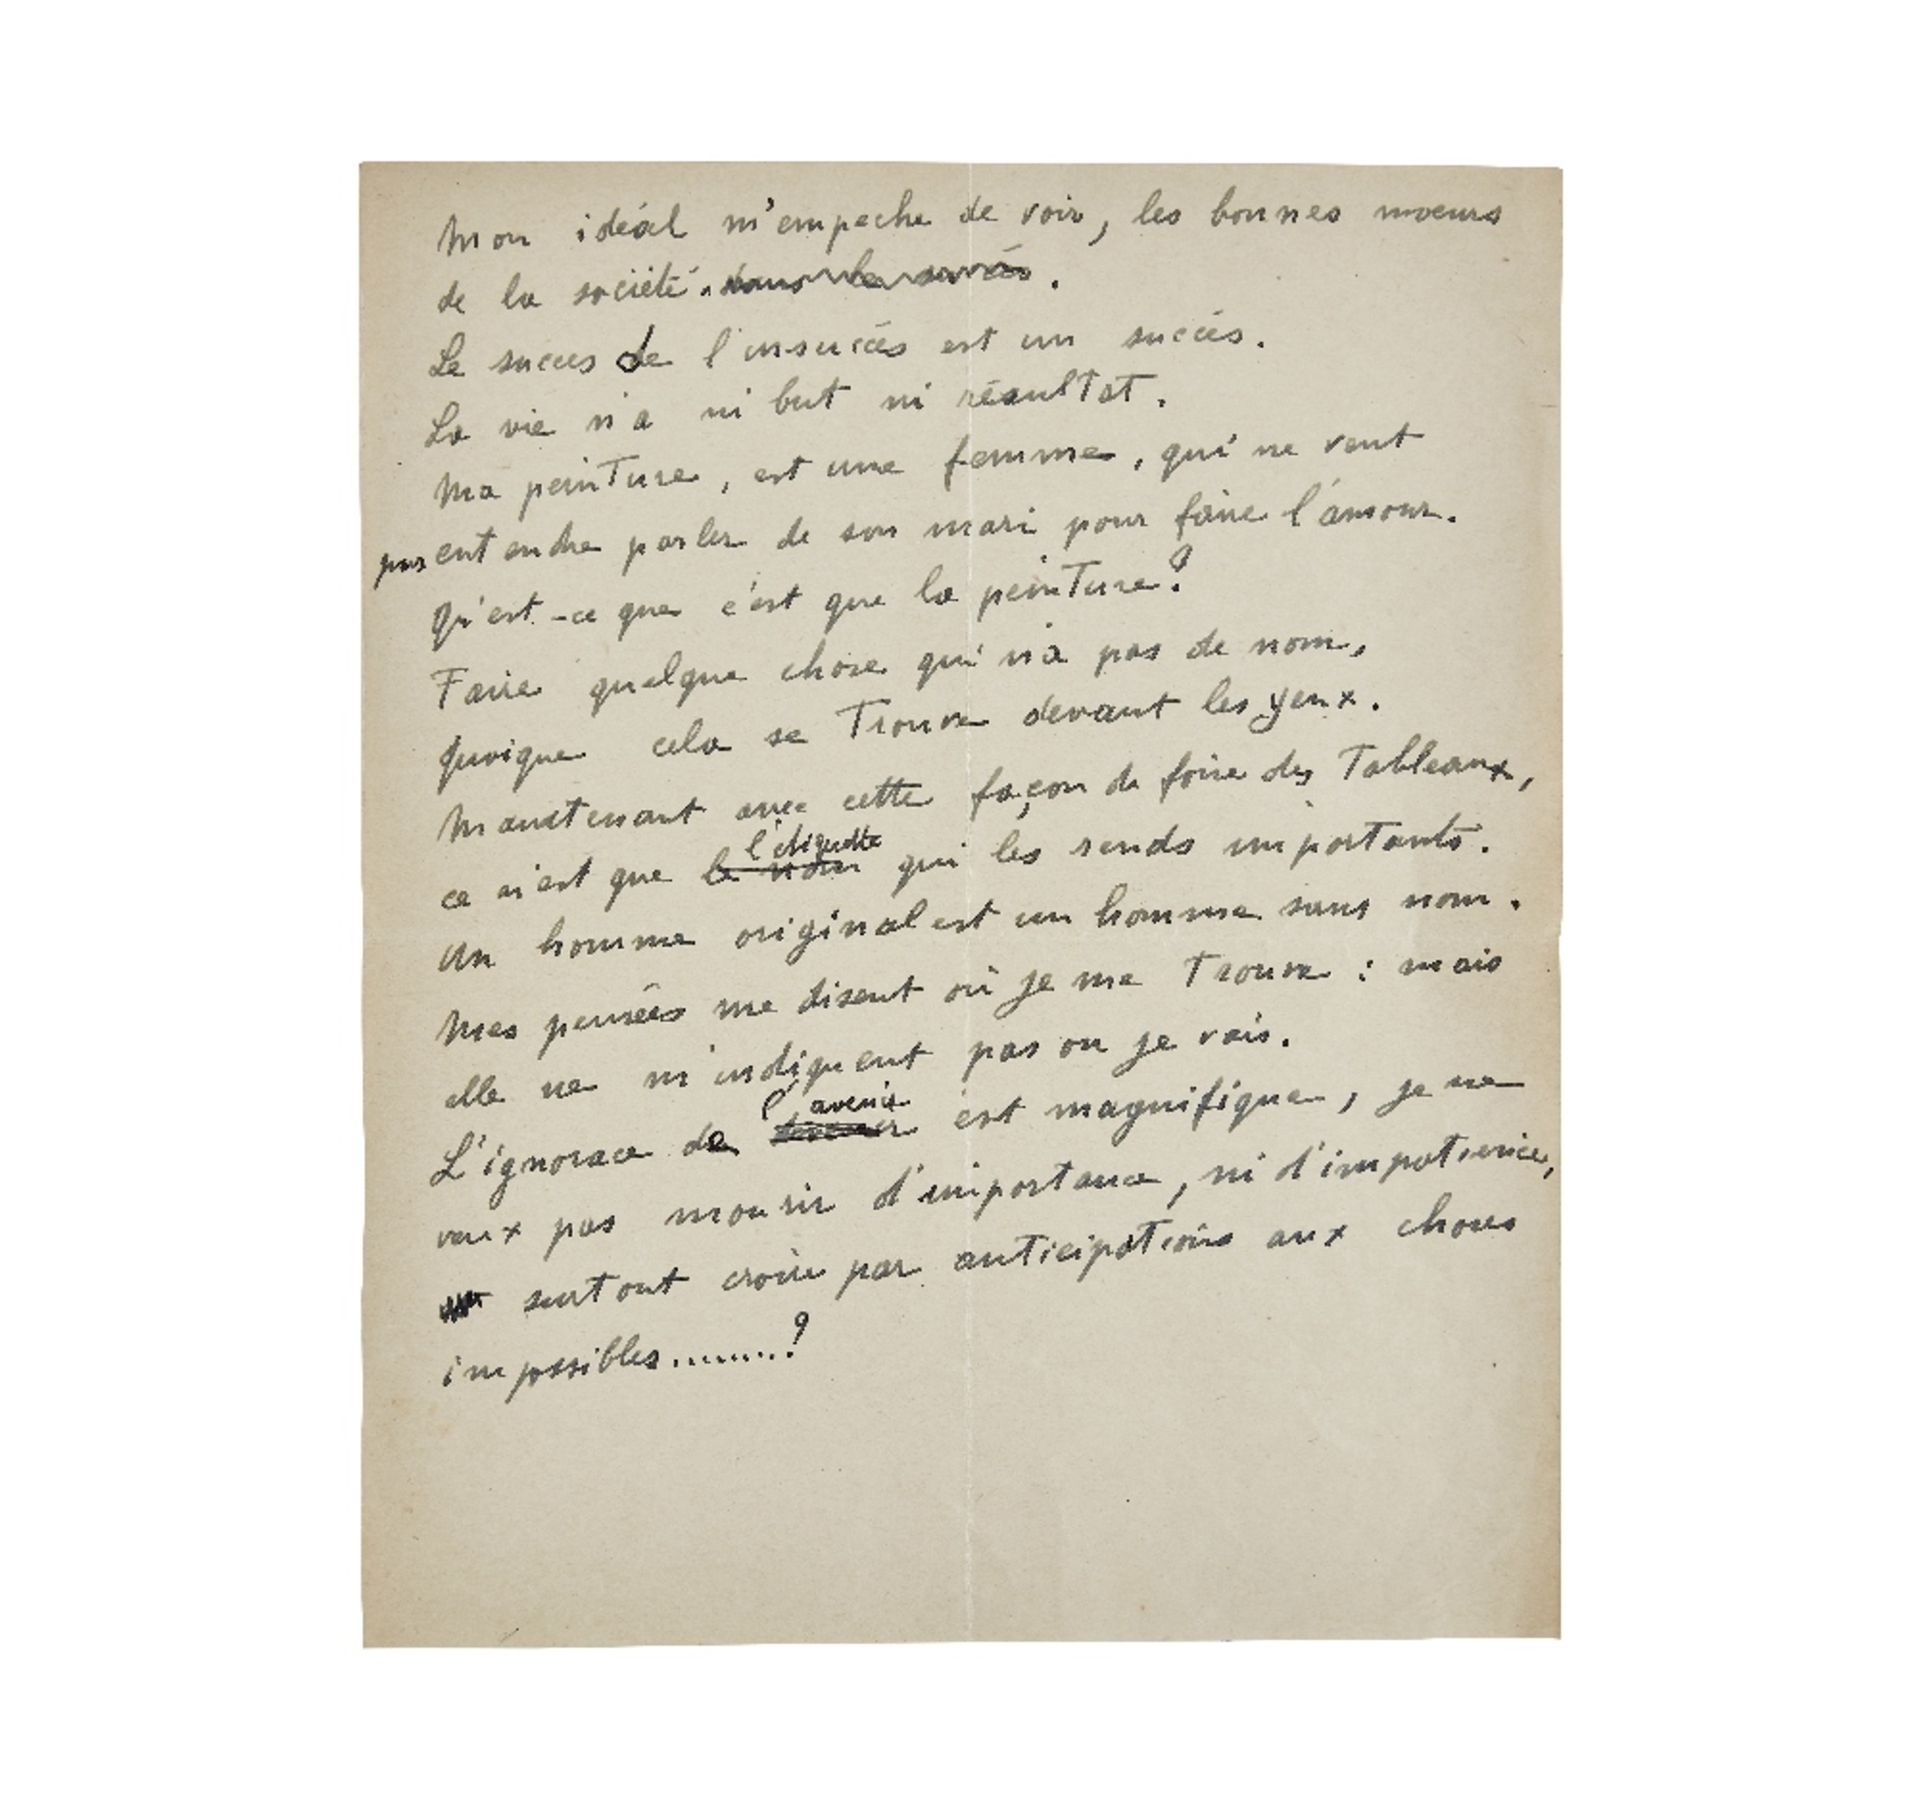 Mon idéal m'empeche de voir, les bonnes moeurs
de la sociéte. dans le succés.
Le succes de l'insuccés est un succés.
La vie n'a ni but ni résultat.
Ma peinture, est une femme, qui ne veut
pas entendre parler de son mari pour faire l'amour.
Qu'est-ce que c'est que la peinture?
Faire quelque chose qui n'a pas de nom,
quoique cela se trouve devant les yeux.
Maintenant avec cette façon de faire des Tableaux,
l'etiquette
ce n'est que le nom qui les rends importants.
Un homme original est un homme sans nom.
Mes pensées me disent où je me trouve : mais
elle ne m'indiquent pas ou je vais.
l'avenir
L'ignorace de est magnifique, je ne
veux pas mourir d'importance, ni d'impatience,
surtout croire par anticipations aux choses
impossibles........?